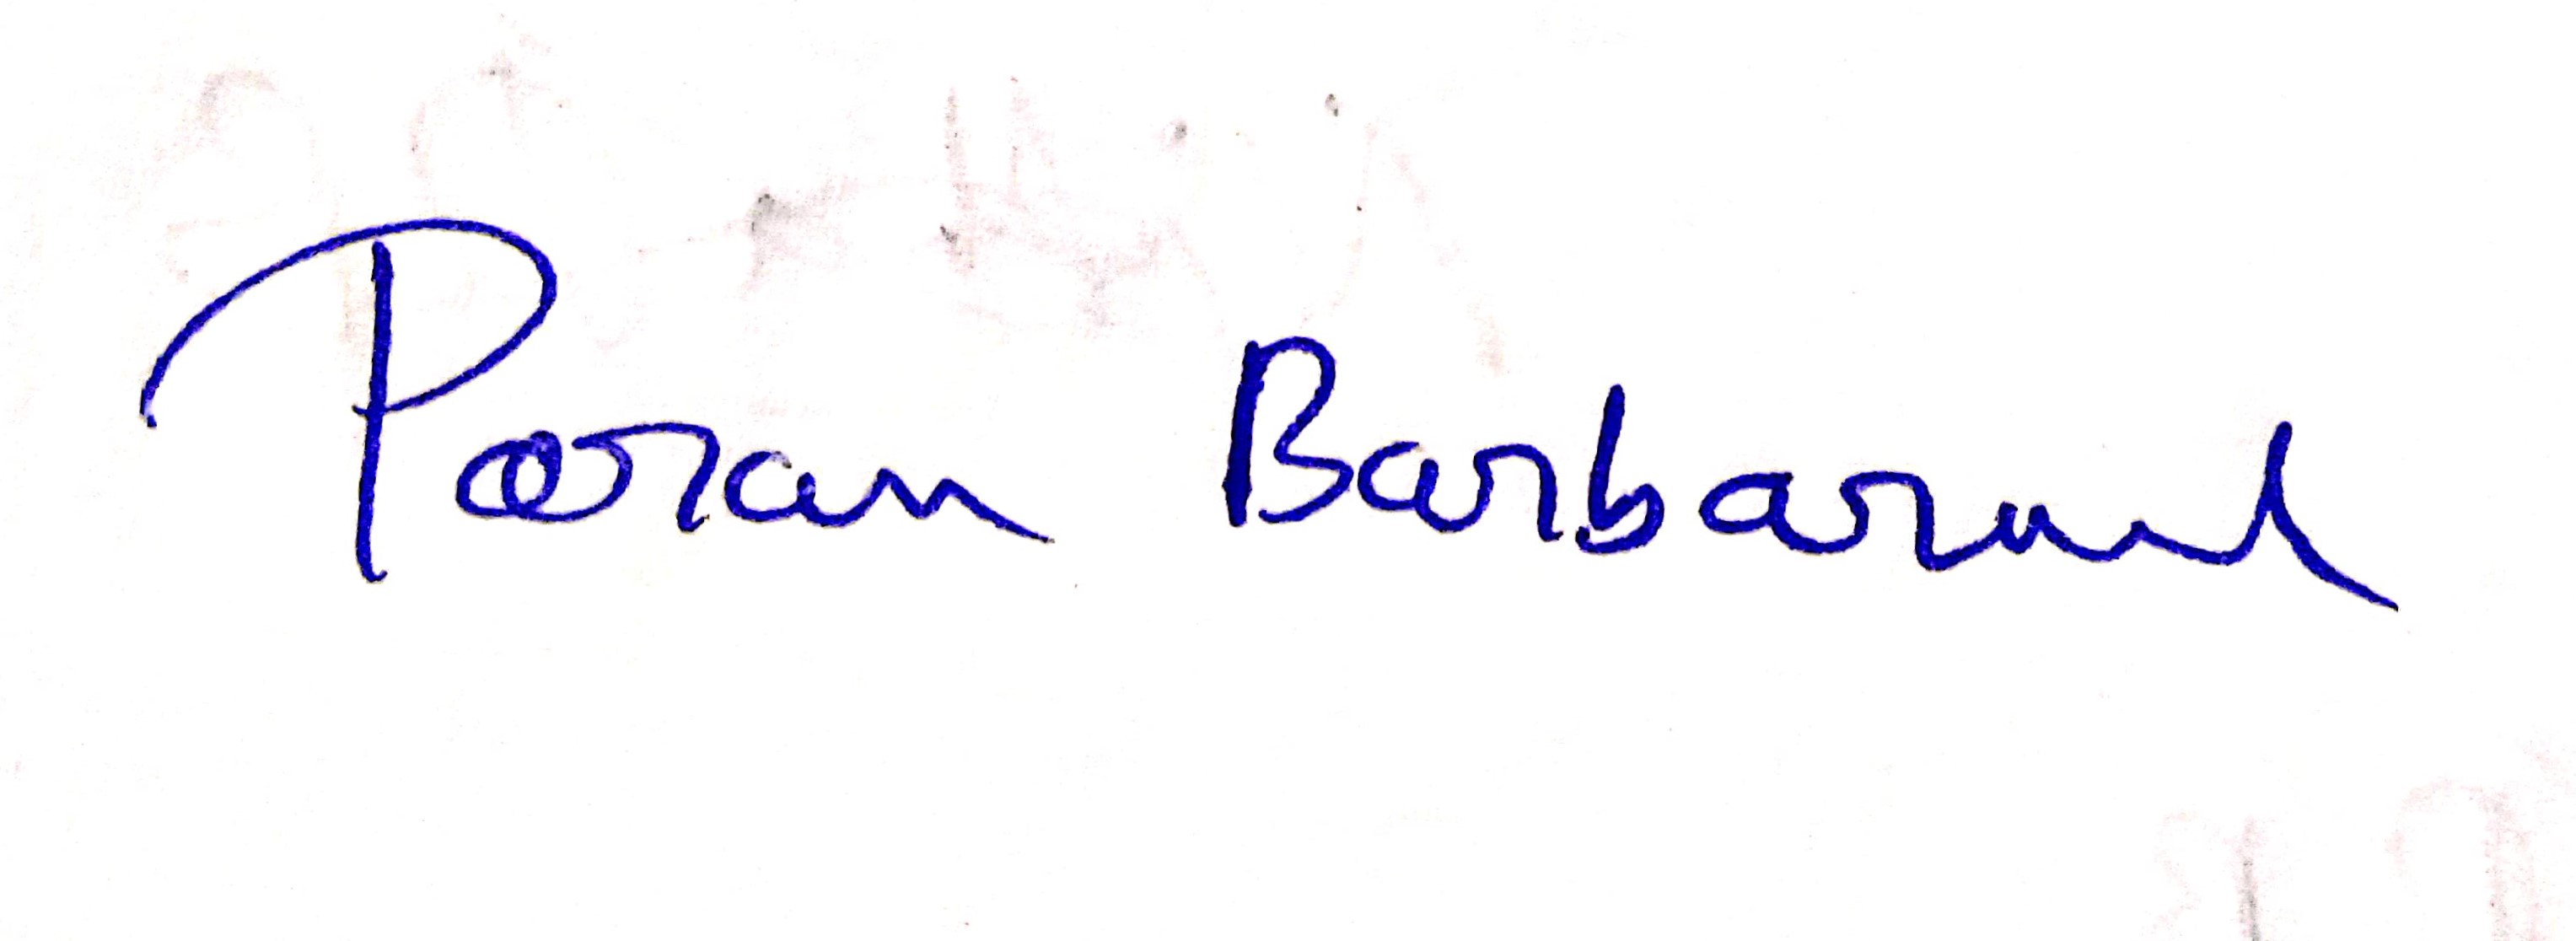 Poran Barbaruah